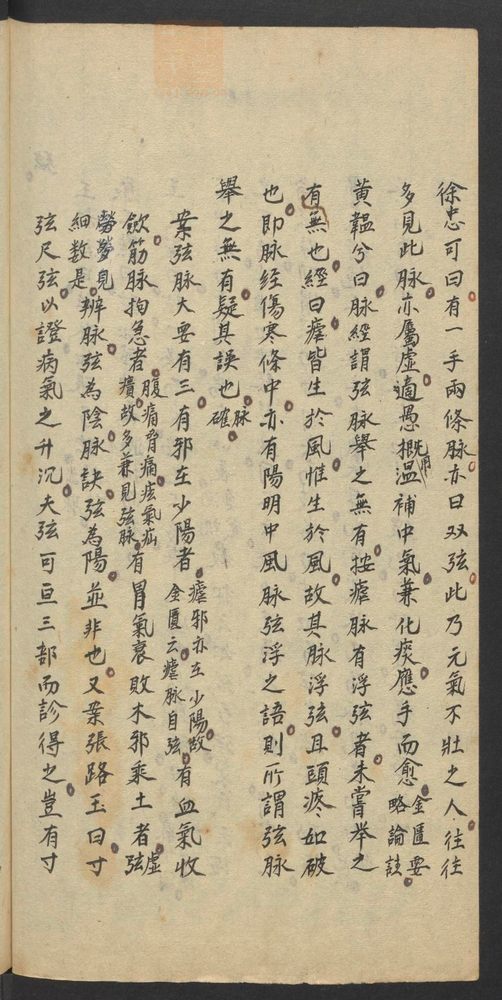 徐忠可曰有一手兩條脉亦曰双弦此乃元氣不壯之人往往
多見此脉亦屬虛適愚概用溫補中氣兼化痰應手而愈金匱要略論註
黃韞兮曰脉經謂弦脉舉之無有按瘧脉有浮弦者未嘗举之
有無也經曰瘧皆生於風惟生於風故其脉浮弦且頭疼如破
也即脉經傷寒條中亦有陽明中風脉弦浮之語則所謂弦脉
舉之無有疑其誤也脉確
案弦脉大要有三有邪在少陽者瘧邪亦在少陽故金匱云瘧脉自弦有血氣收
歛筋脉拘急者腹痛脅痛痃氣疝㿉故多兼見弦脉有冒氣衰敗木邪乘土者虛弦
勞勞見細数是辨脉弦為陰脉訣弦為陽並非也又案張路玉曰寸
弦尺弦以證病氣之升沉夫弦可亘三部而診得之豈有寸